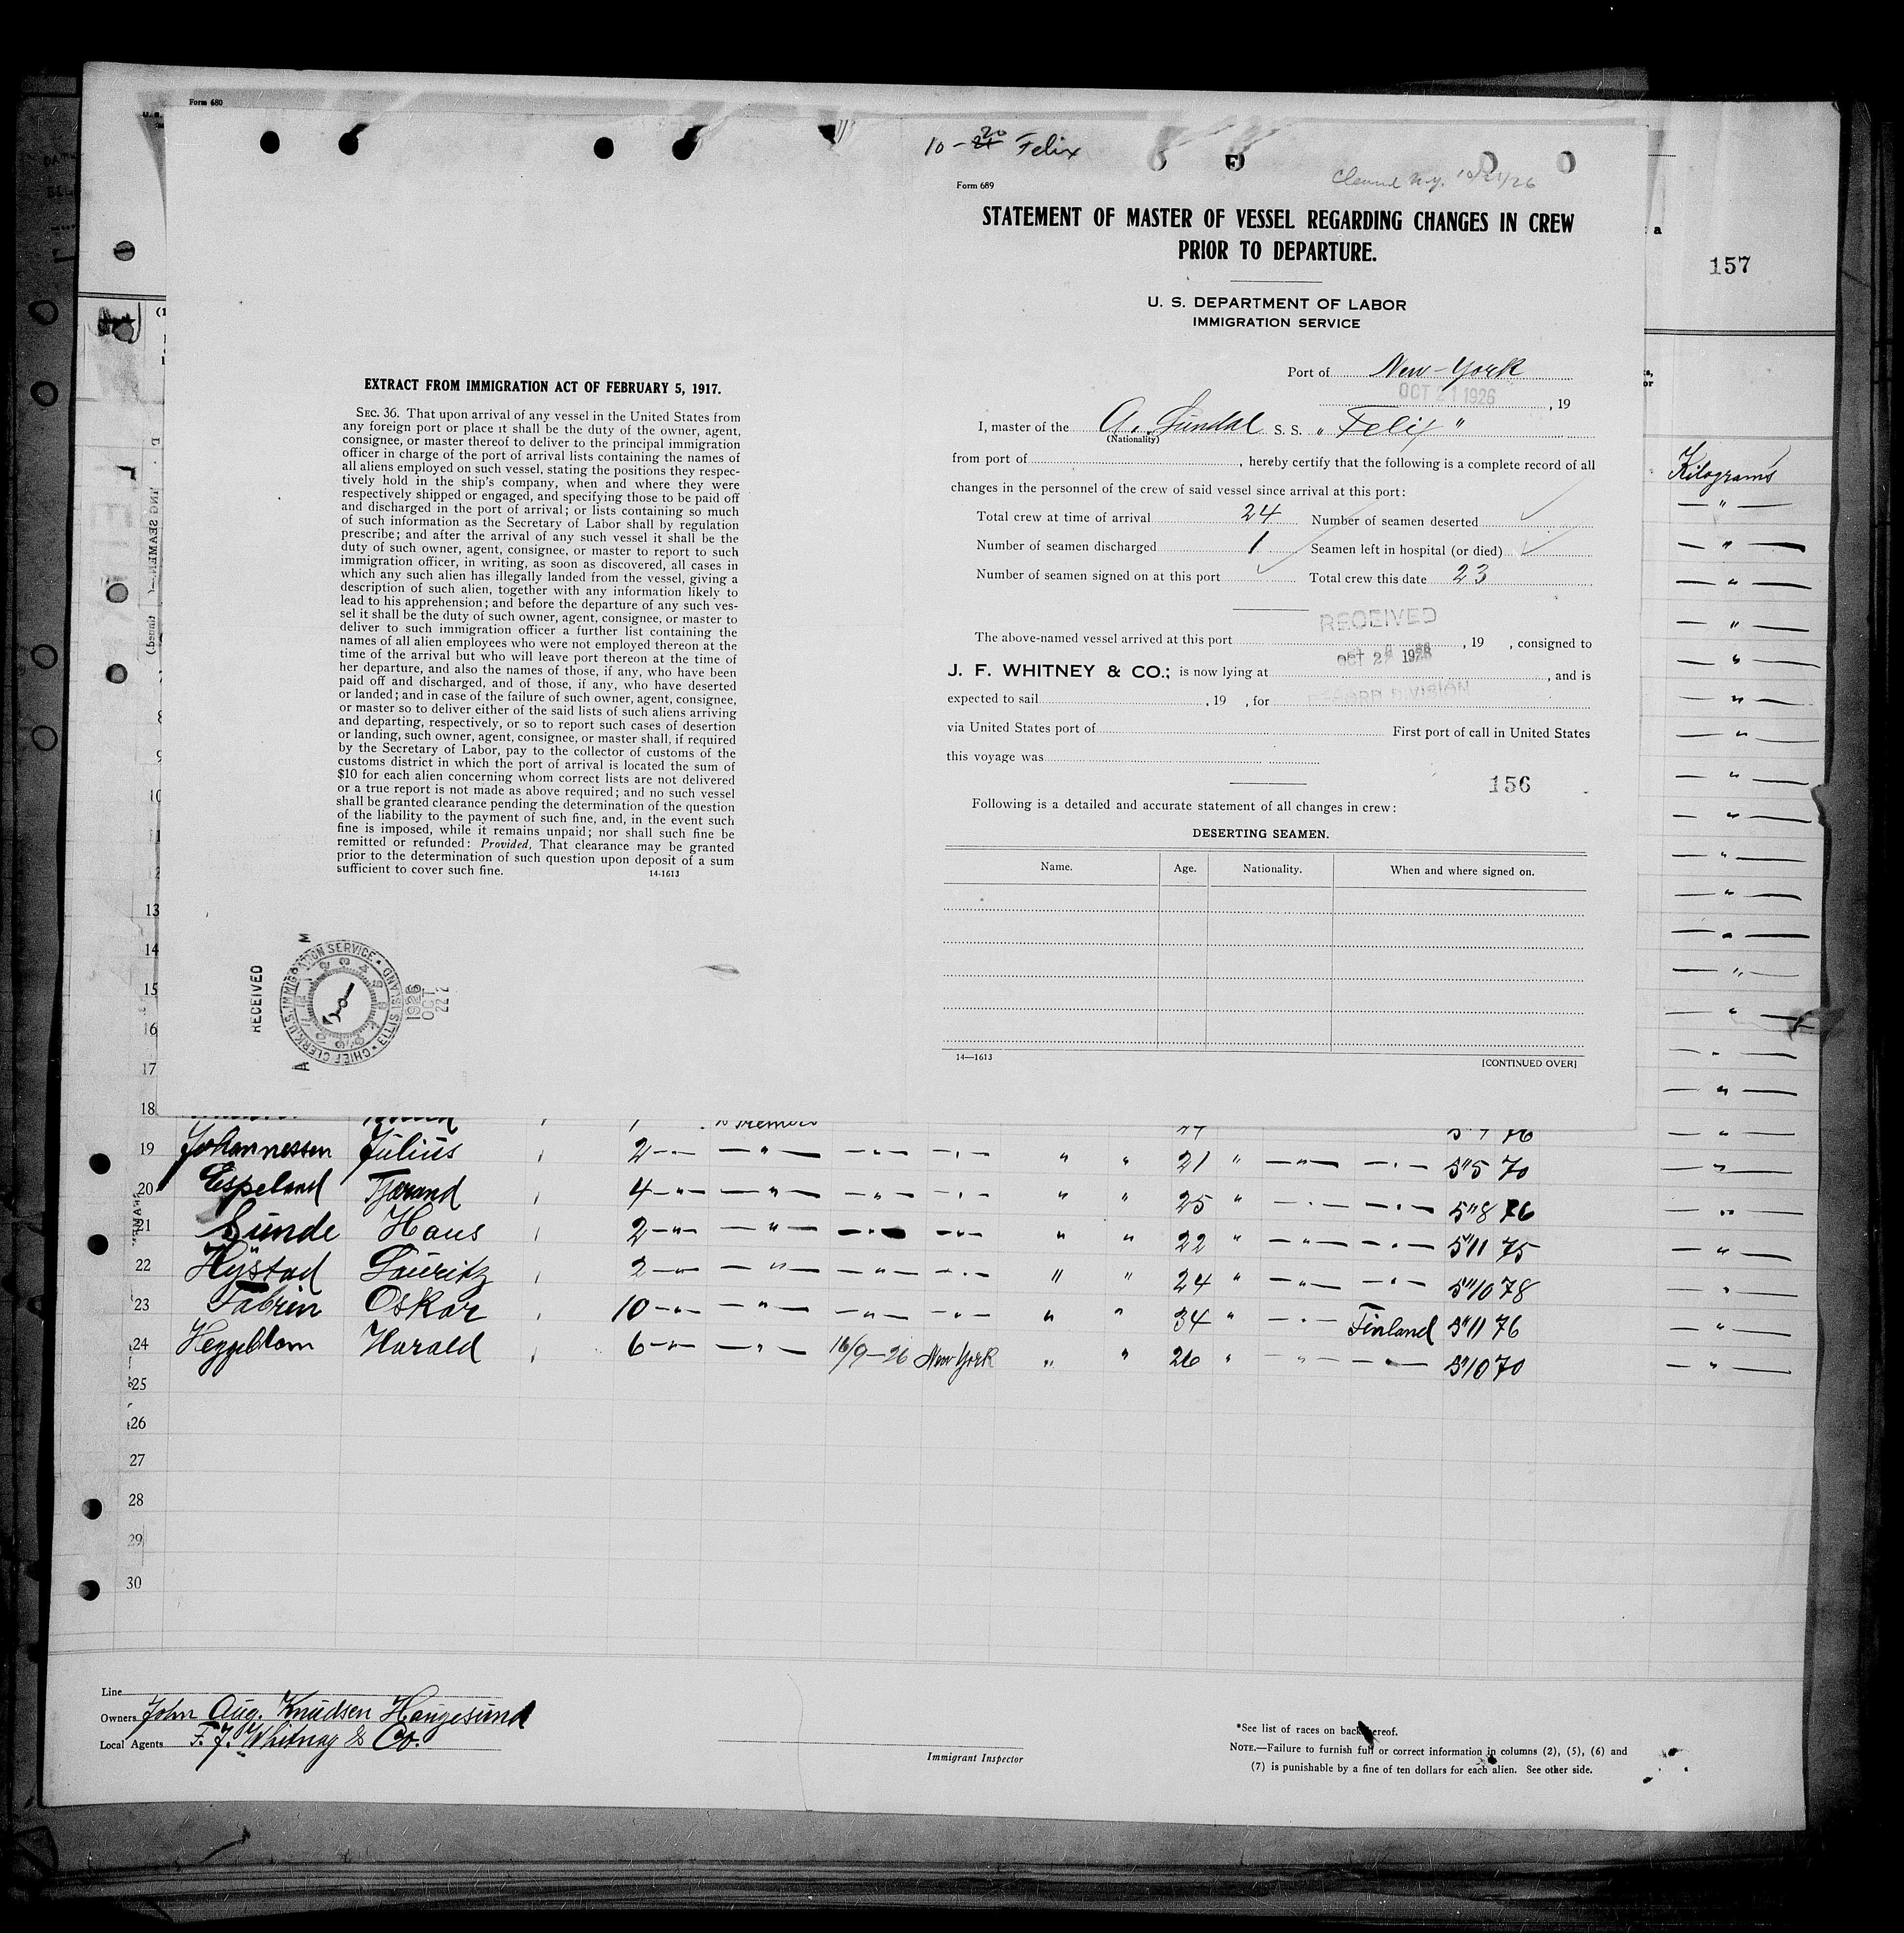 Form 680
EXTRACT FROM IMMIGRATION ACT OF FEBRUARY 5, 1917.
SEC. 36. That upon arrival of any vessel in the United States from
any foreign port or place it shall be the duty of the owner, agent,
consignee, or master thereof to deliver to the principal immigration
officer in charge of the port of arrival lists containing the names of
all aliens employed on such vessel, stating the positions they respec-
tively hold in the ship's company, when and where they were
respectively shipped or engaged, and specifying those to be paid off
and discharged in the port of arrival; or lists containing so much
of such information as the Secretary of Labor shall by regulation
prescribe; and after the arrival of any such vessel it shall be the
duty of such owner, agent, consignee, or master to report to such
immigration officer, in writing, as soon as discovered, all cases in
which any such alien has illegally landed from the vessel, giving a
description of such alien, together with any information likely to
lead to his apprehension; and before the departure of any such ves-
sel it shall be the duty of such owner, agent, consignee, or master to
deliver to such immigration officer a further list containing the
names of all alien employees who were not employed thereon at the
time of the arrival but who will leave port thereon at the time of
her departure, and also the names of those, if any, who have been
paid off and discharged, and of those, if any, who have deserted
or landed; and in case of the failure of such owner, agent, consignee,
or master so to deliver either of the said lists of such aliens arriving
and departing, respectively, or so to report such cases of desertion
or landing, such owner, agent, consignee, or master shall, if required
by the Secretary of Labor, pay to the collector of customs of the
customs district in which the port of arrival is located the sum of
$10 for each alien concerning whom correct lists are not delivered
or a true report is not made as above required; and no such vessel
shall be granted clearance pending the determination of the question
of the liability to the payment of such fine, and, in the event such
fine is imposed, while it remains unpaid; nor shall such fine be
remitted or refunded: Provided, That clearance may be granted
prior to the determination of such question upon deposit of a sum
sufficient to cover such fine.
14-1613
RECEIVED
CHIEF CLERK. U.S. IMMIGRATION SERVICE • ELLIS ISLAND
1926
OCT
22
10-20 Felix
Form 689
STATEMENT OF MASTER OF VESSEL REGARDING CHANGES IN CREW
PRIOR TO DEPARTURE.
U. S. DEPARTMENT OF LABOR
IMMIGRATION SERVICE
Port of New-York
OCT 21 1926 , 19
I, master of the A. Sundal S. S. "Felix"
(Nationality)
from port of , hereby certify that the following is a complete record of all
changes in the personnel of the crew of said vessel since arrival at this port:
Total crew at time of arrival 24 Number of seamen deserted
Number of seamen discharged 1 Seamen left in hospital (or died)
Number of seamen signed on at this port Total crew this date 23
RECEIVED
The above-named vessel arrived at this port , 19 , consigned to
J. F. WHITNEY & CO.; is now lying at , and is
expected to sail , 19 , for
via United States port of First port of call in United States
this voyage was
156
Following is a detailed and accurate statement of all changes in crew:
DESERTING SEAMEN.
Name. Age. Nationality. When and where signed on.
14—1613 [CONTINUED OVER]
157
Kilograms
13
14
15
16
17
18
19 Johannessen Julius 2 " " " " " " 21 " " " 5"5 70
20 Espeland Tjerand 4 " " " " " " 25 " " " 5"8 76
21 Sunde Hans 2 " " " " " " 22 " " " 5"11 75
22 Hystad Lauritz 2 " " " " " " 24 " " " 5"10 78
23 Fabrin Oskar 10 " " " " " " 34 " " Finland 5"11 76
24 Heggeblom Harald 6 " " 16/9-26 New York " " 26 " " " 5"10 70
25
26
27
28
29
30
Line
Owners John Aug. Knudsen Haugesund
Local Agents F. J. Whitney & Co.
Immigrant Inspector
*See list of races on back hereof.
NOTE.—Failure to furnish full or correct information in columns (2), (5), (6) and
(7) is punishable by a fine of ten dollars for each alien. See other side.